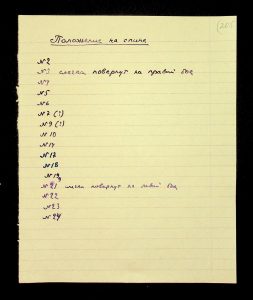 (20)
Положение на спине
№2
№3 слегка повернут на правый бок
№4
№5
№6
№7 (?)
№9 (?)
№10
№14
№17
№18
№19
№21 слегка повернут на левый бок
№22
№23
№24